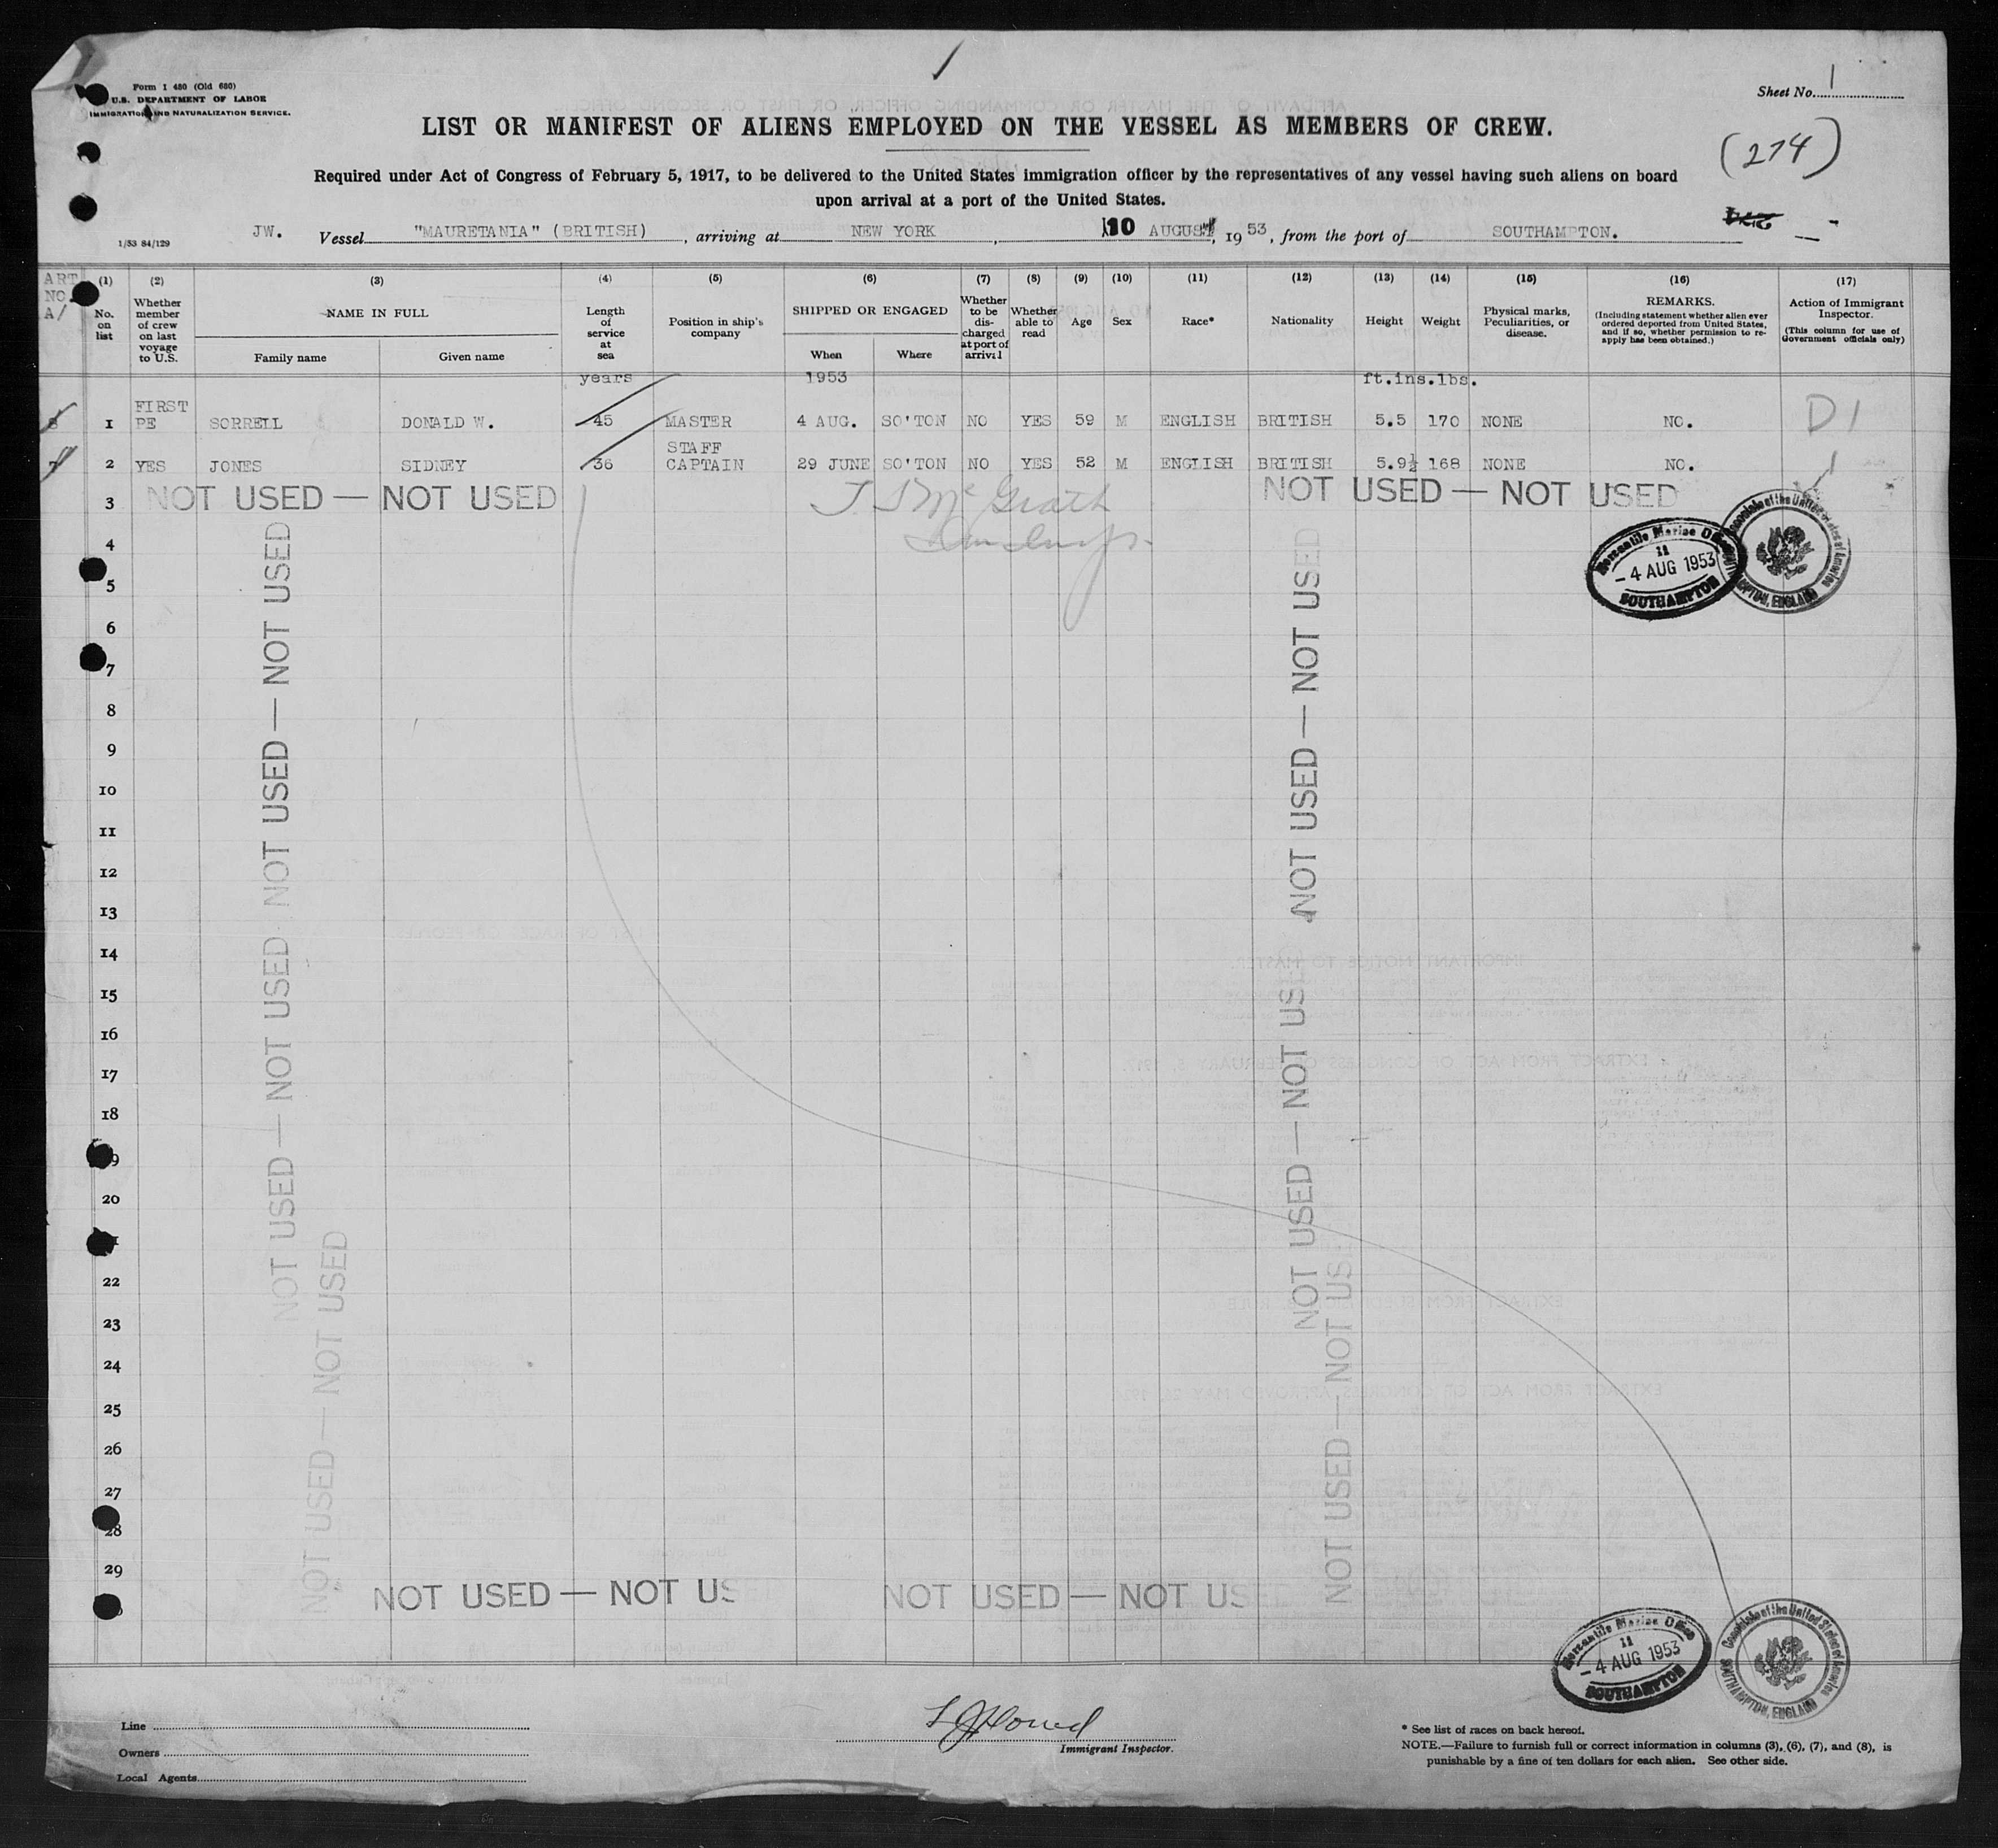 Form I 480 (Old 680)
U.S. DEPARTMENT OF LABOR
IMMIGRATION AND NATURALIZATION SERVICE.
Sheet No. 1
LIST OR MANIFEST OF ALIENS EMPLOYED ON THE VESSEL AS MEMBERS OF CREW.
(274)
Required under Act of Congress of February 5, 1917, to be delivered to the United States immigration officer by the representatives of any vessel having such aliens on board
upon arrival at a port of the United States.
1/53 84/129
JW. Vessel "MAURETANIA" (BRITISH), arriving at NEW YORK, 10 AUGUST, 19 53, from the port of SOUTHAMPTON.
ART NO. A/
(1) No. on list
(2) Whether member of crew on last voyage to U.S.
(3) NAME IN FULL
Family name
Given name
(4) Length of service at sea
(5) Position in ship's company
(6) SHIPPED OR ENGAGED
When
Where
(7) Whether to be discharged at port of arrival
(8) Whether able to read
(9) Age
(10) Sex
(11) Race*
(12) Nationality
(13) Height
(14) Weight
(15) Physical marks, Peculiarities, or disease.
(16) REMARKS. (Including statement whether alien ever ordered deported from United States, and if so, whether permission to re-apply has been obtained.)
(17) Action of Immigrant Inspector. (This column for use of Government officials only)
years 1953 ft.ins.lbs.
1 FIRST PE SORRELL DONALD W. 45 MASTER 4 AUG. SO'TON NO YES 59 M ENGLISH BRITISH 5.5 170 NONE NO. D1
2 YES JONES SIDNEY 36 STAFF CAPTAIN 29 JUNE SO'TON NO YES 52 M ENGLISH BRITISH 5.9½ 168 NONE NO.
3 NOT USED — NOT USED NOT USED — NOT USED
McGrath
Mercantile Marine Office
11
- 4 AUG 1953
SOUTHAMPTON
Consulate of the United States of America
SOUTHAMPTON, ENGLAND
4
5
6
7
8
9
10
11
12
13
14
15
16
17
18
9
20
22
23
24
25
26
27
28
29
NOT USED — NOT USED — NOT USED
NOT USED — NOT USED — NOT USED
NOT USED — NOT USED
NOT USED — NOT USED — NOT USED
NOT USED — NOT USED — NOT USED
NOT USED — NOT US
NOT USED — NOT US
NOT USED — NOT US
Mercantile Marine Office
11
- 4 AUG 1953
SOUTHAMPTON
Consulate of the United States of America
SOUTHAMPTON, ENGLAND
Line
Owners
Local Agents
Immigrant Inspector.
* See list of races on back hereof.
NOTE.—Failure to furnish full or correct information in columns (3), (6), (7), and (8), is
punishable by a fine of ten dollars for each alien. See other side.